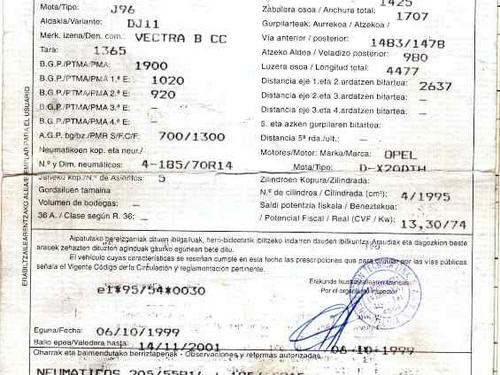 Mota/Tipo: J96
Aldakia/Variante: DJ11
Merk. Izena/Den. com.: VECTRA B CC
Tara: 1365
B.G.P/PTMA/PMA: 1900
B.G.P/PTMA/PMA 1.ª E: 1020
B.G.P/PTMA/PMA 2.ª E: 920
B.G.P/PTMA/PMA 3.ª E: —
B.G.P/PTMA/PMA 4.ª E: —
A.G.P. bg/bz./PMR S/F.C/F: 700/1300
Neumatikoen kop. eta neur./
N.º y Dim. neumáticos: 4-185/70R14
Jarleku kop./N.º de Asientos: 5
Gordailuen tamaina
Volumen de bodegas: —
36 A. / Clase según R. 36: —
Zabalera osoa / Anchura total: 1425
Gurpilarteak: Aurrekoa / Atzekoa / 1707
Vía anterior / posterior: 1483/1478
Atzeko Aldea / Voladizo posterior: 980
Luzera osoa / Longitud total: 4477
Distancia eje 1.eta 2.ardatzen bitartea: 2637
Distancia eje 2.eta 3.ardatzen bitartea: —
Distancia eje 3.eta 4.ardatzen bitartea: —
5. eta azken gurpilaren bitartea:
Distancia 5ª rda./ult.: —
Motores/Motor: Marka/Marca: OPEL
Mota/Tipo: D-X20DTH
Zilindroen Kopura/Zilindrada:
N.º de cilindros / Cilindrada (cm³): 4/1995
Saldi potentzia fiskala / Benetakoa:
/ Potencial Fiscal / Real (CVF / Kw): 13,30/74
ERABILTZAILEARENTZAKO ALEA / EJEMPLAR PARA EL USUARIO
Aipatutako berezitasunak dituen ibilgailuak, herri-bideetatik ibiltzeko indarren dauden Ibilkuntza Araudiak eta dagozkion beste
arauek zehazten dituzten aginduak gaurko egunean bete ditu.
El vehículo cuyas características se reseñan cumple en esta fecha las prescripciones que para circular por las vías públicas
señala el Vigente Código de la Circulación y reglamentación pertinente.
Por el organismo inspector
e1*95/54*0030
Eguna/Fecha: 06/10/1999
Balio epea/Valedera hasta: 14/11/2001
06-10-1999
Oharrak eta baimendutako berriztapenak - Observaciones y reformas autorizadas
NEUMATICOS 205/55R1